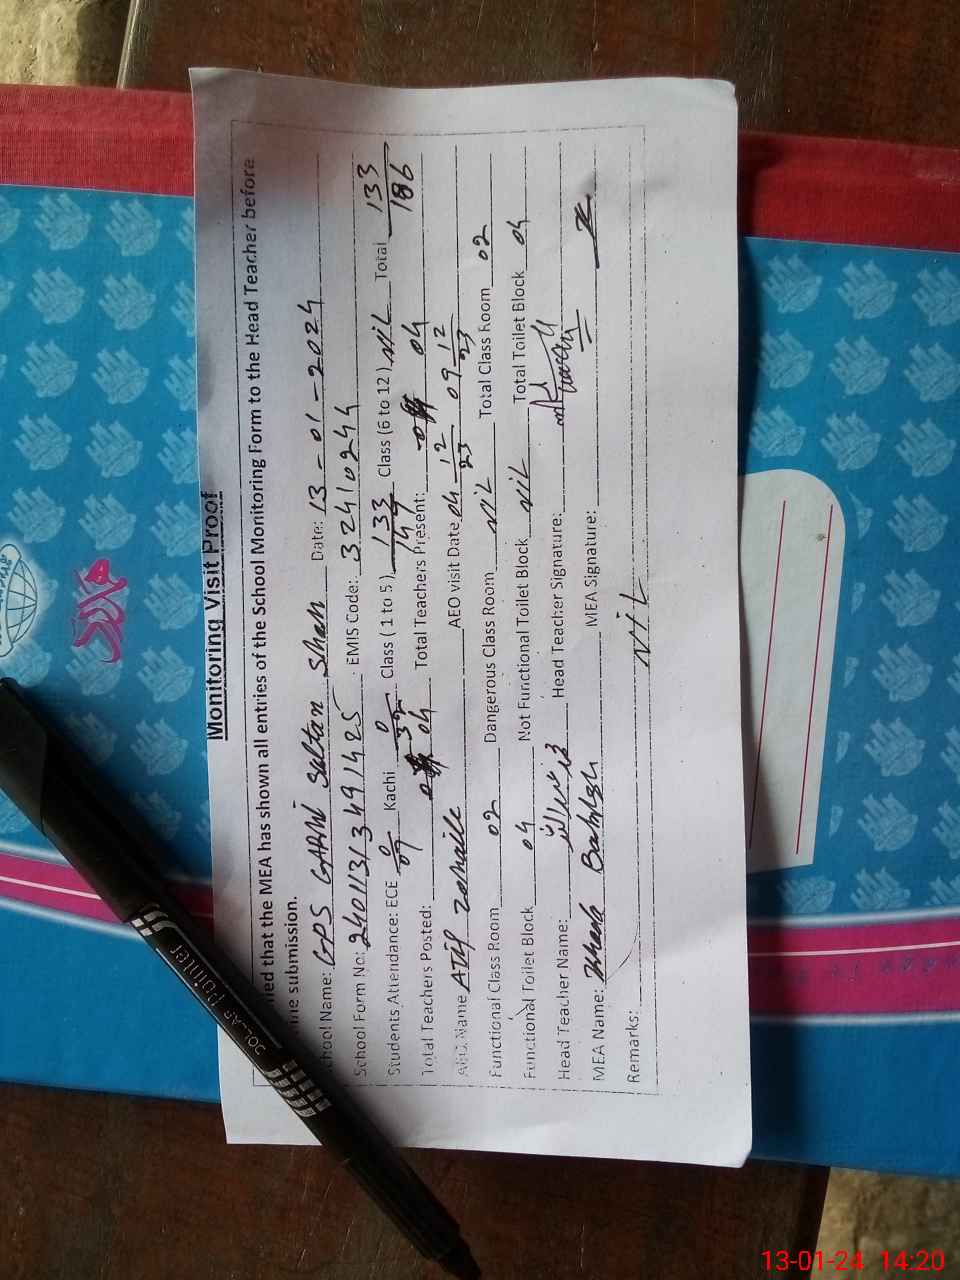 Monitoring Visit Proof
that the MEA has shown all entries of the School Monitoring Form to the Head Teacher before
submission.
School Name: GPS GARHI Sultan Shah Date: 13-01-2024
School Form No: 24011313491425 EMIS Code: 32410244
Students Attendance: ECE 0/0 Kachi 0/39 Class ( 1 to 5 ) 133/147 Class (6 to 12 ) NIL Total 133/186
Total Teachers Posted: 04 Total Teachers Present: 04
AEO Name ATIF AEO visit Date 04 12/23 09 12/23
Functional Class Room 02 Dangerous Class Room NIL Total Class Room 02
Functional Toilet Block 04 Not Functional Toilet Block NIL Total Toilet Block 04
Head Teacher Name: Head Teacher Signature:
MEA Name: Bakhsh MEA Signature:
Remarks: NIL
DOLLAR Pointer
13-01-24 14:20